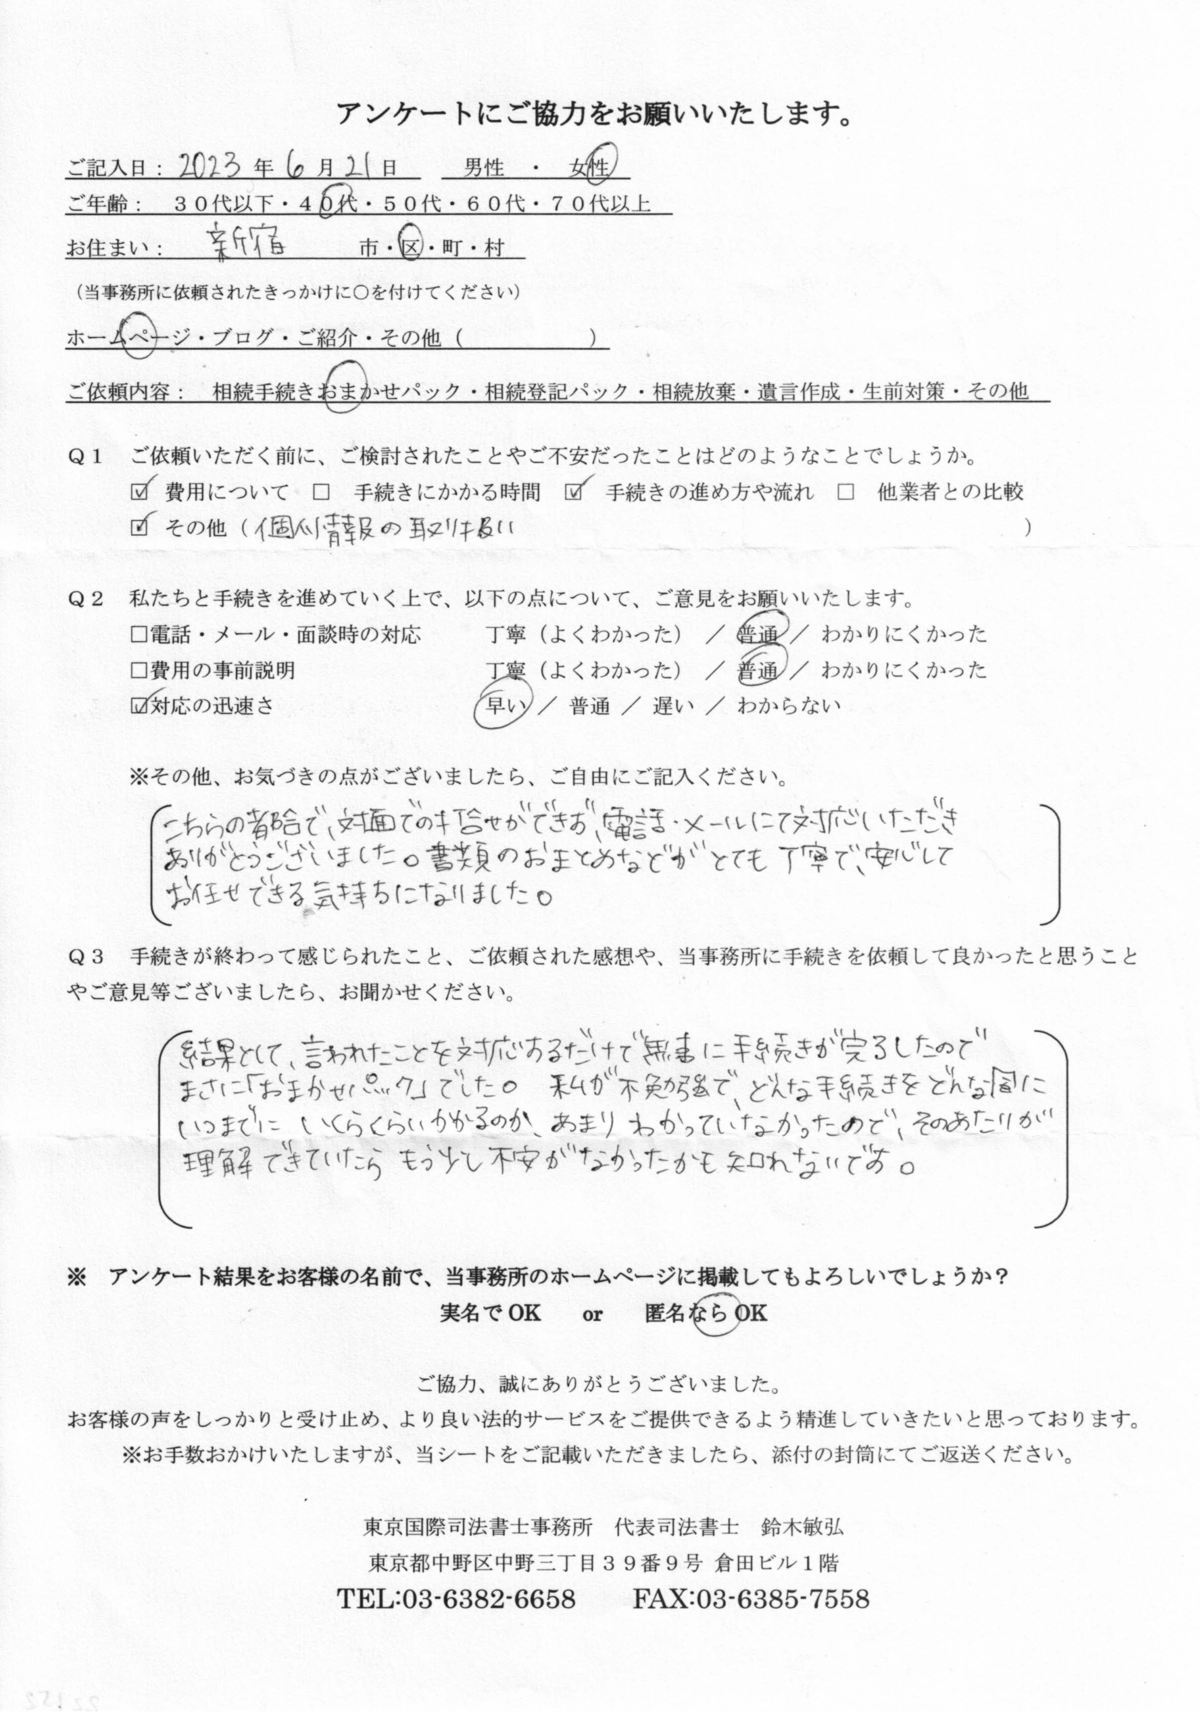 アンケートにご協力をお願いいたします。
ご記入日： 2023 年 6 月 21 日　男性 ・ 女性
ご年齢： ３０代以下・４０代・５０代・６０代・７０代以上
お住まい： 新宿　市・区・町・村
（当事務所に依頼されたきっかけに○を付けてください）
ホームページ・ブログ・ご紹介・その他（　　　　　　）
ご依頼内容： 相続手続きおまかせパック・相続登記パック・相続放棄・遺言作成・生前対策・その他
Ｑ１　ご依頼いただく前に、ご検討されたことやご不安だったことはどのようなことでしょうか。
☑ 費用について　□ 手続きにかかる時間　☑ 手続きの進め方や流れ　□ 他業者との比較
☑ その他（個人情報の取り扱い　　　　）
Ｑ２　私たちと手続きを進めていく上で、以下の点について、ご意見をお願いいたします。
□電話・メール・面談時の対応　丁寧（よくわかった） ／ 普通 ／ わかりにくかった
□費用の事前説明　丁寧（よくわかった） ／ 普通 ／ わかりにくかった
☑対応の迅速さ　早い ／ 普通 ／ 遅い ／ わからない
※その他、お気づきの点がございましたら、ご自由にご記入ください。
こちらの都合で、対面での打合せができず、電話・メールにて対応いただき
ありがとうございました。書類のおまとめなどがとても丁寧で、安心して
お任せできる気持ちになりました。
Ｑ３　手続きが終わって感じられたこと、ご依頼された感想や、当事務所に手続きを依頼して良かったと思うこと
やご意見等ございましたら、お聞かせください。
結果として、言われたことを対応するだけで無事に手続きが完了したので
まさに「おまかせパック」でした。 私が不勉強で、どんな手続きをどんな風に
いつまでに いくらくらいかかるのか、あまり わかっていなかったので、そのあたりが
理解できていたら もう少し不安がなかったかも知れないです。
※　アンケート結果をお客様の名前で、当事務所のホームページに掲載してもよろしいでしょうか？
実名で OK　or　匿名なら OK
ご協力、誠にありがとうございました。
お客様の声をしっかりと受け止め、より良い法的サービスをご提供できるよう精進していきたいと思っております。
※お手数おかけいたしますが、当シートをご記載いただきましたら、添付の封筒にてご返送ください。
東京国際司法書士事務所　代表司法書士　鈴木敏弘
東京都中野区中野三丁目３９番９号 倉田ビル１階
TEL:03-6382-6658　FAX:03-6385-7558